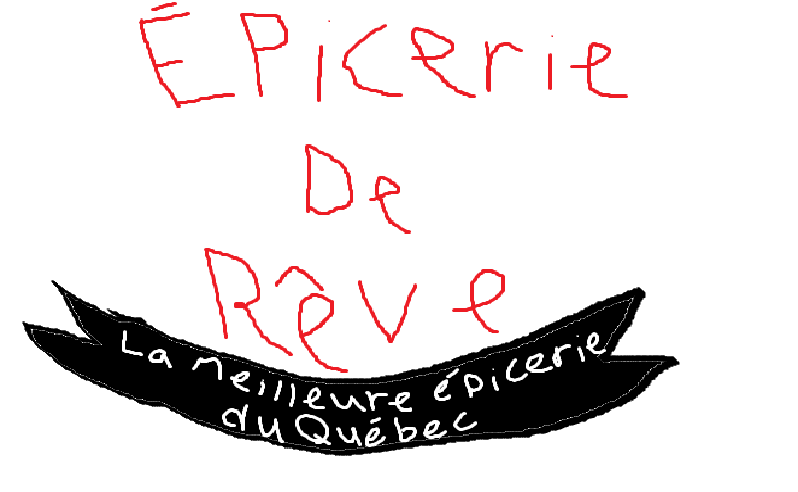 Épicerie
De
Rêve
La meilleure épicerie
du Québec